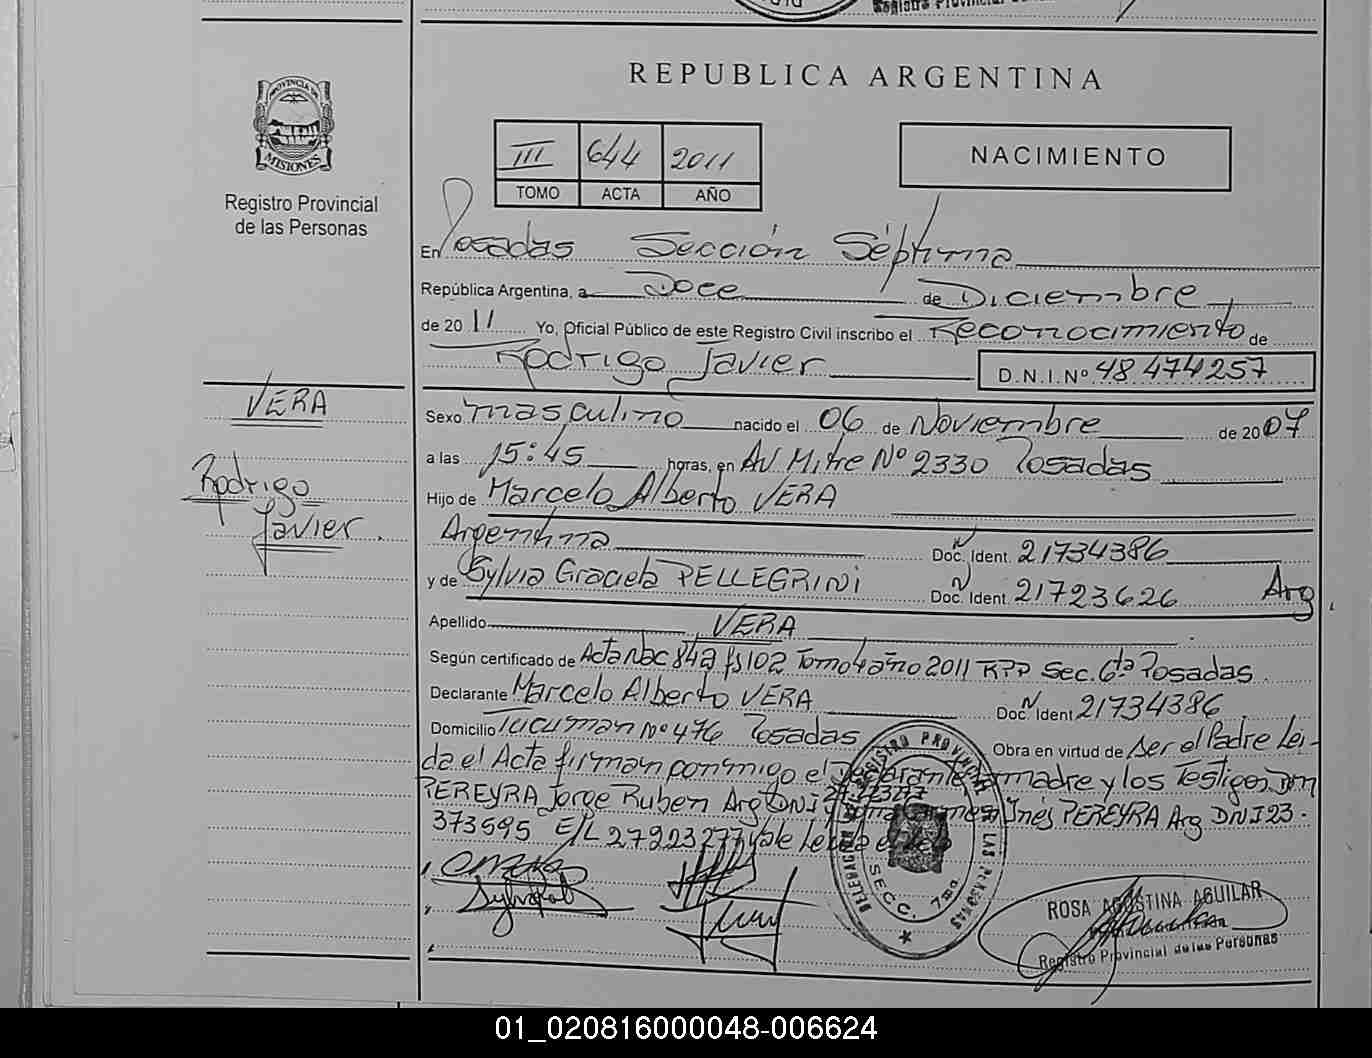 Registro Provincial
REPUBLICA ARGENTINA
PROVINCIA DE
MISIONES
Registro Provincial
de las Personas
III 644 2011
TOMO ACTA AÑO
NACIMIENTO
En Posadas Sección Séptima
República Argentina, a Doce de Diciembre
de 2011 Yo, Oficial Público de este Registro Civil inscribo el Reconocimiento de
Rodrigo Javier D.N.I.Nº 48474257
VERA
Rodrigo
Javier.
Sexo masculino nacido el 06 de Noviembre de 2007
a las 15:45 horas, en Av Mitre Nº 2330 Posadas
Hijo de Marcelo Alberto VERA
Argentina Doc. Ident. 21734386
y de Sylvia Graciela PELLEGRINI Doc. Ident. 21723626 Arg.
Apellido VERA
Según certificado de Acta Nac 842 fs 102 Tomo 4 año 2011 RPP Sec. 6ta Posadas.
Declarante Marcelo Alberto VERA Doc. Ident 21734386
Domicilio Tucuman Nº 476 Posadas Obra en virtud de Ser el Padre Lei-
da el Acta firman conmigo el Declarante la madre y los Testigos
PEREYRA Jorge Ruben Arg DNI Inés PEREYRA Arg DNI 23.
373595 E/L 27923277 Vale
DELEGACION DEL REGISTRO PROVINCIAL DE LAS PERSONAS
SECC. 7ma
ROSA AGOSTINA AGUILAR
Registro Provincial de las Personas
01_020816000048-006624